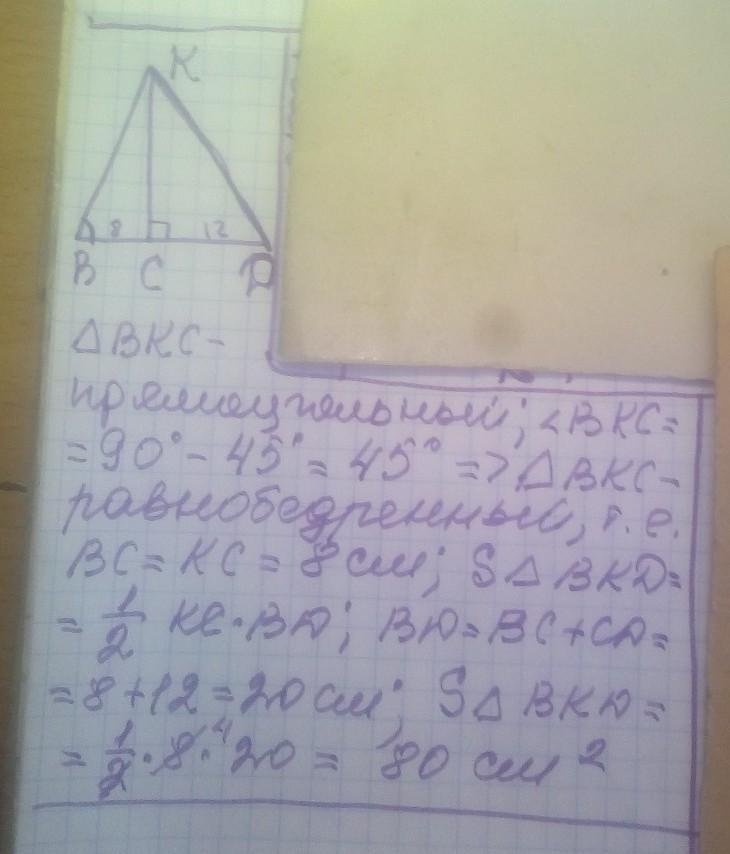 K
8 12
B C D
△BKC-
прямоугольный; <BKC=
=90°-45°=45° => △BKC-
равнобедренный, т.е.
BC=KC=8см; S△BKD=
=1/2 KC·BD; BD=BC+CD=
=8+12=20см; S△BKD=
=1/2·8·4 20 = 80 см²